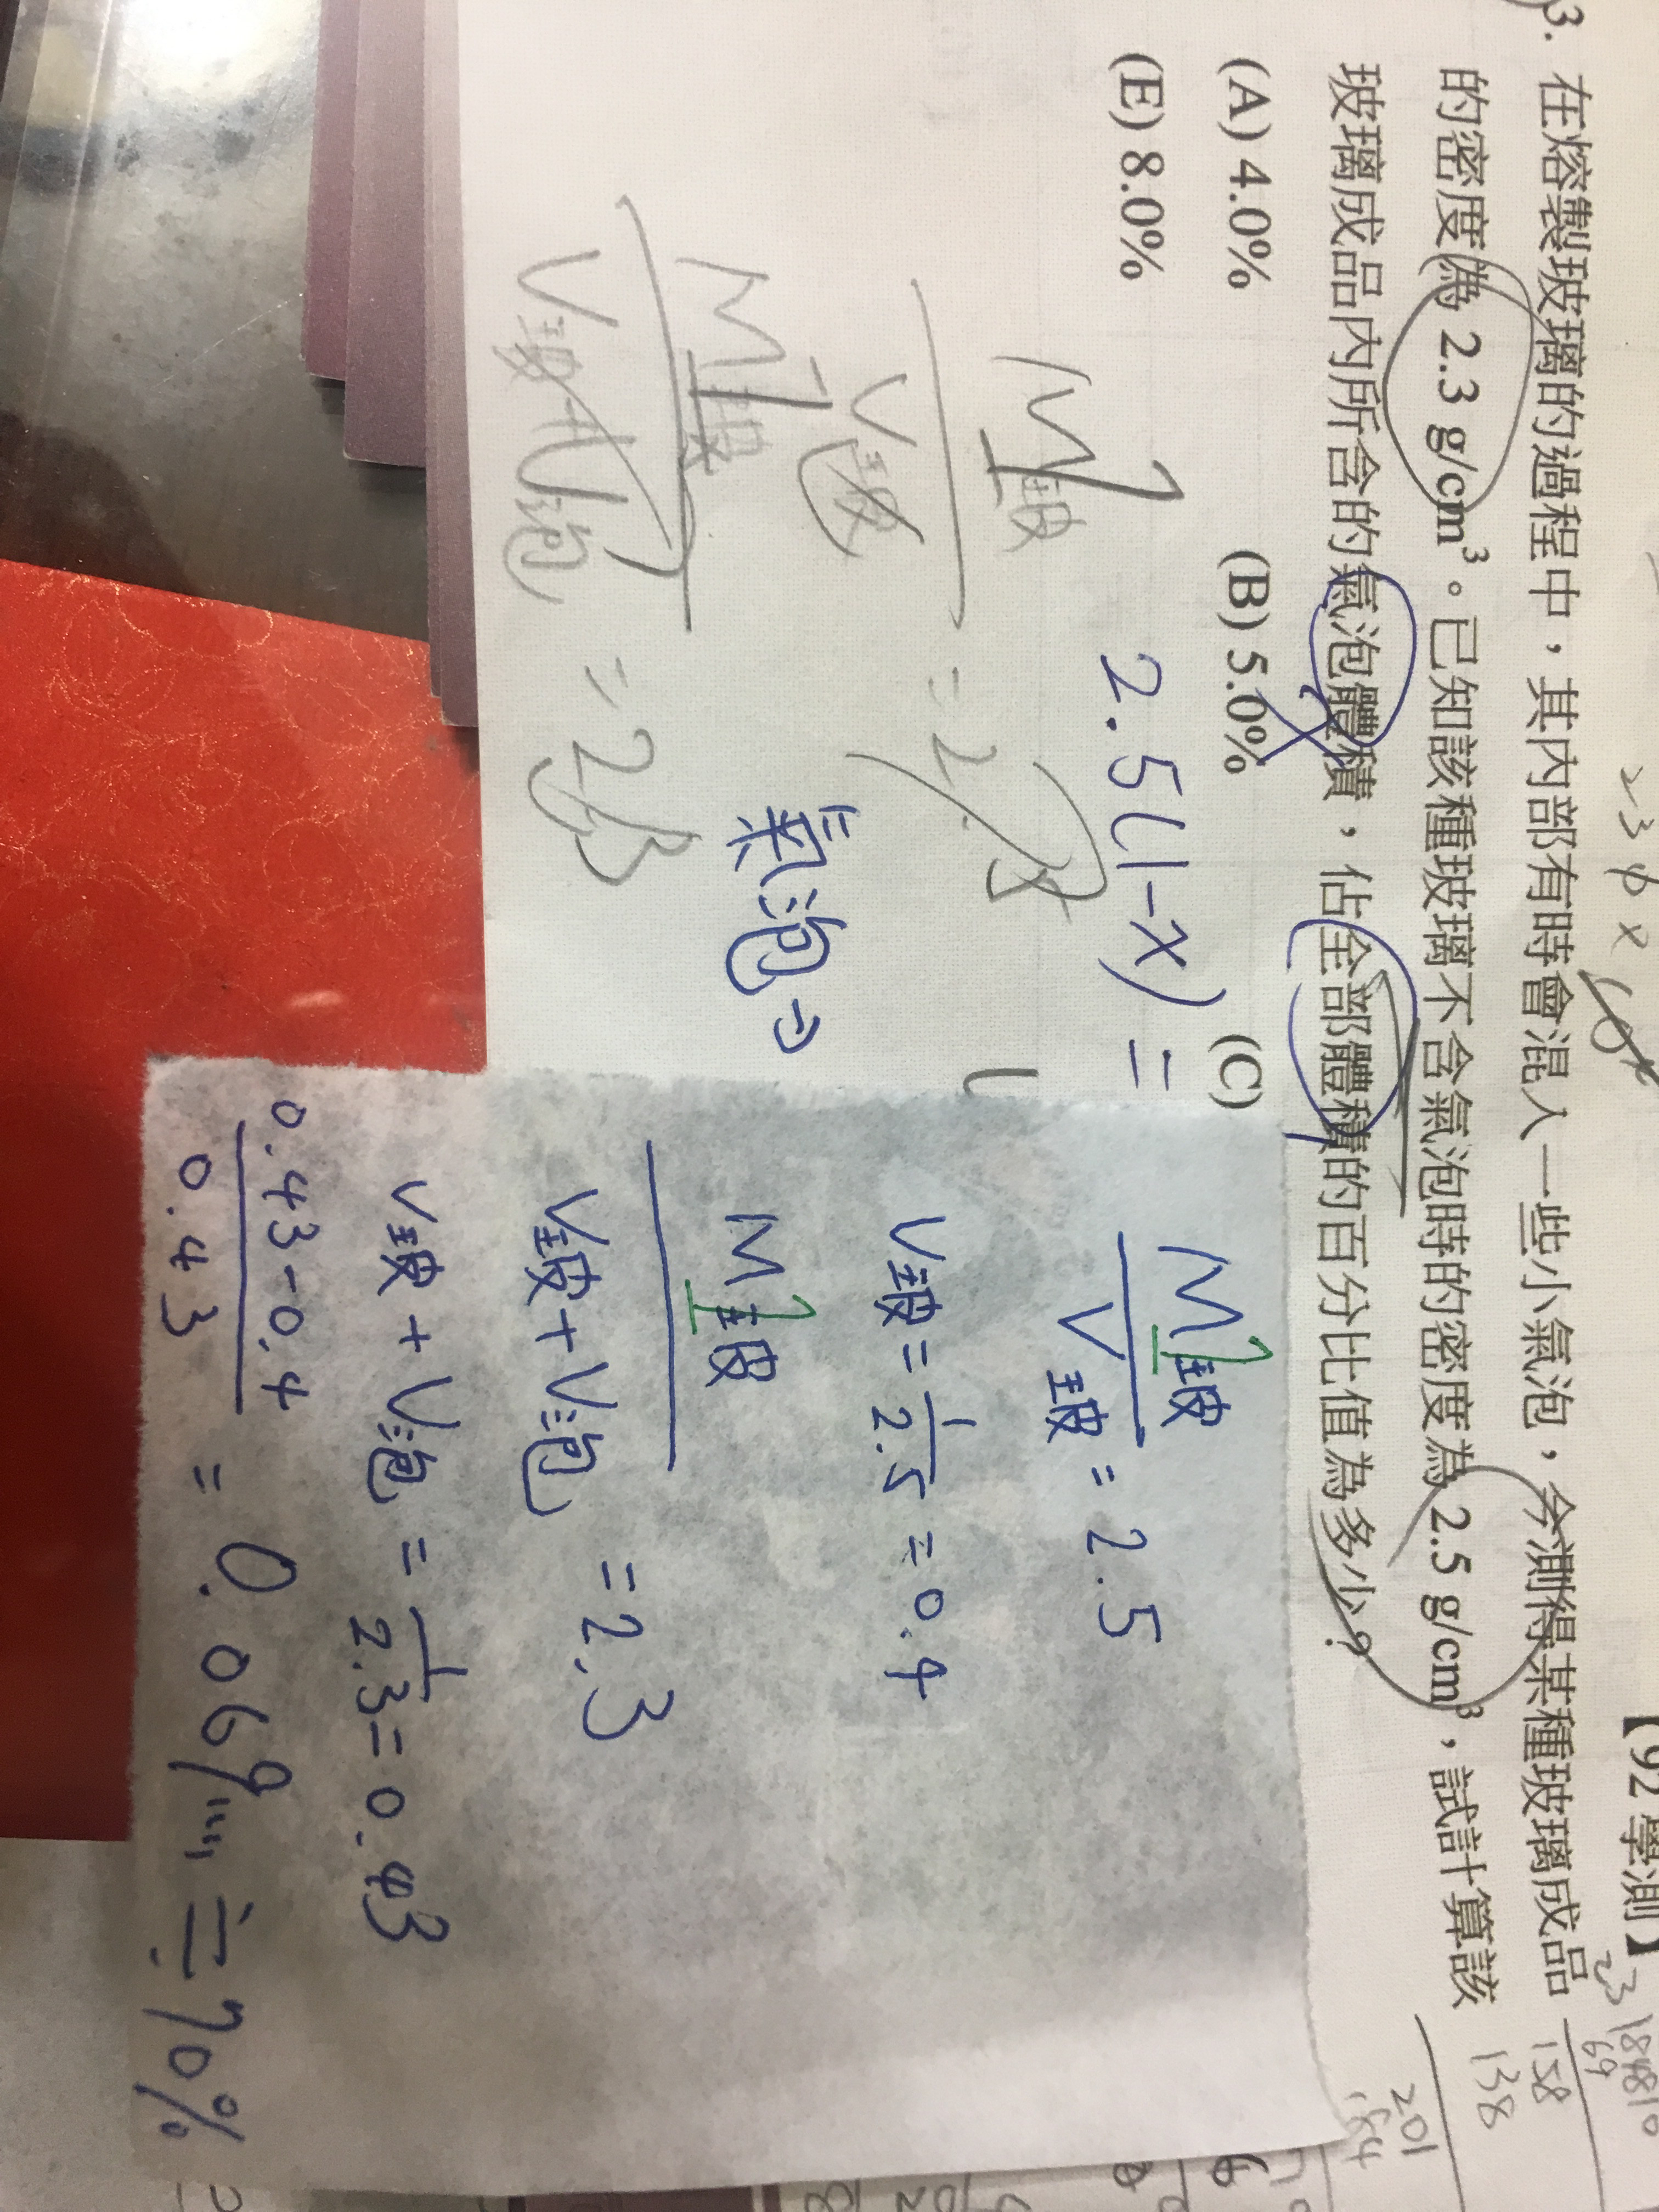 【92 學測】
3. 在熔製玻璃的過程中，其內部有時會混入一些小氣泡，今測得某種玻璃成品
的密度為 2.3 g/cm³。已知該種玻璃不含氣泡時的密度為 2.5 g/cm³，試計算該
玻璃成品內所含的氣泡體積，佔全部體積的百分比值為多少？
(A) 4.0% (B) 5.0% (C)
(E) 8.0%
2.5(1-x) =
M玻 1
V玻 = 2.5
氣泡⇒
M玻 1
V玻+V泡 = 2.3
M玻 1
V玻 = 2.5
V玻 = 1/2.5 = 0.4
M玻 1
V玻+V泡 = 2.3
V玻+V泡 = 1/2.3 = 0.43
0.43-0.4
0.43 = 0.069… ≒ 70%